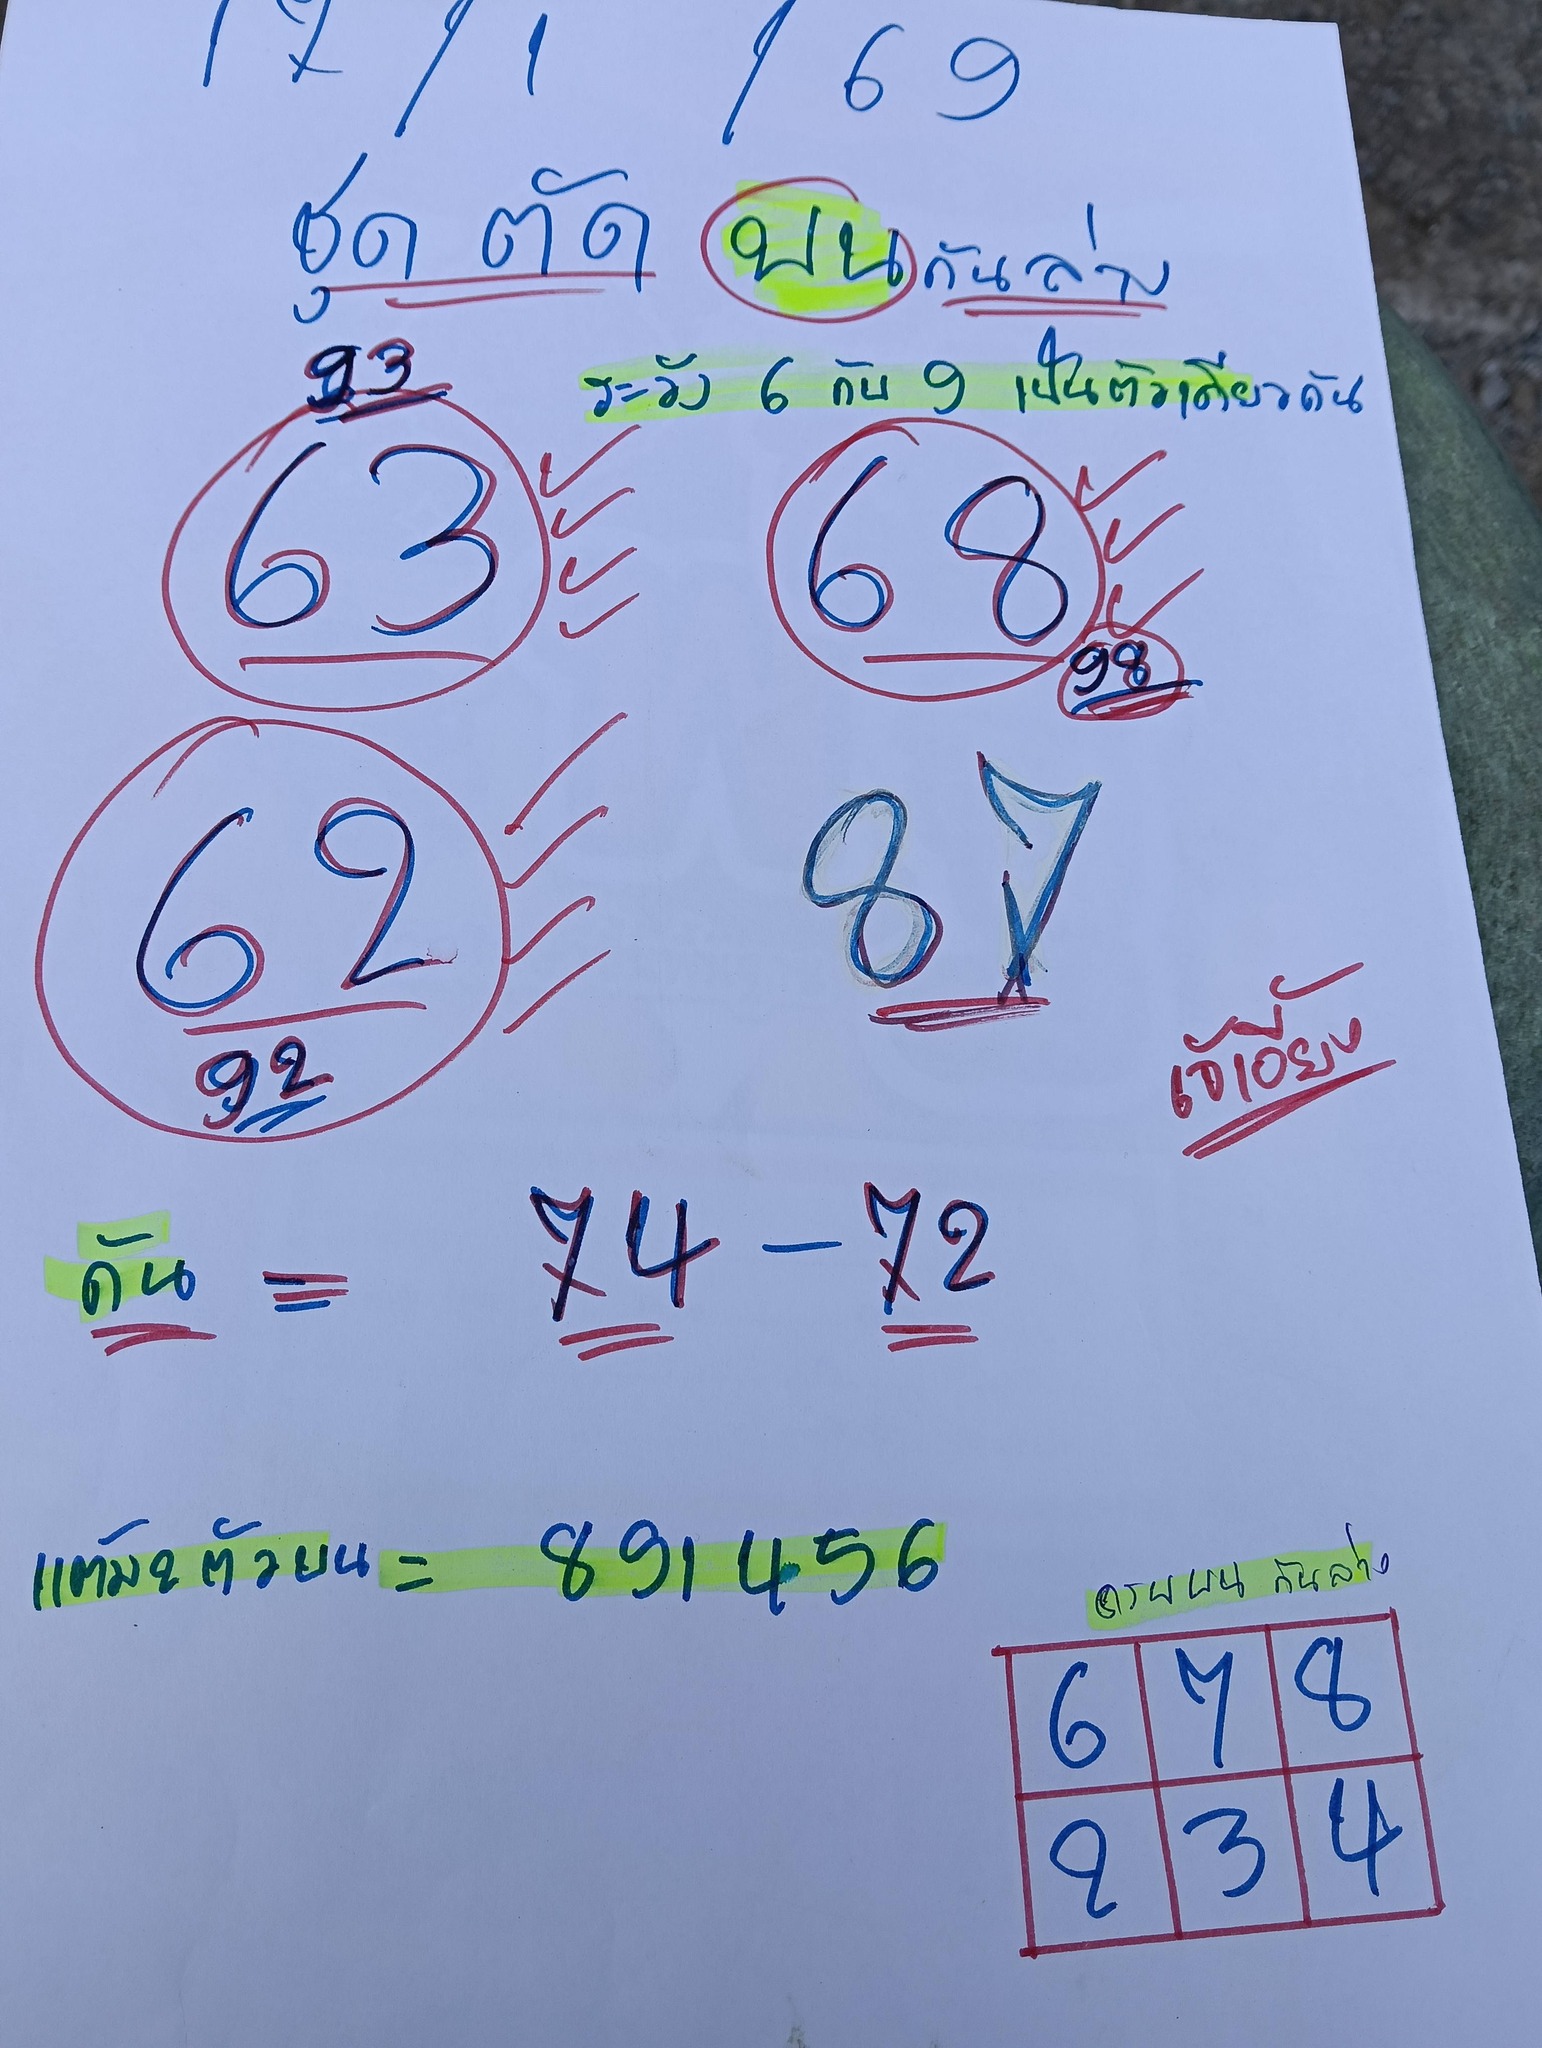 17/1/69
ชุด ตัด บน กันล่าง
93
ระวัง 6 กับ 9 เป็นตัวเดียวกัน
63 68
98
62 87
92
เจ้เอี้ยง
กัน = 74 - 72
แต้ม 2 ตัวบน = 891456
ครบบน กันล่าง
6 7 8
2 3 4